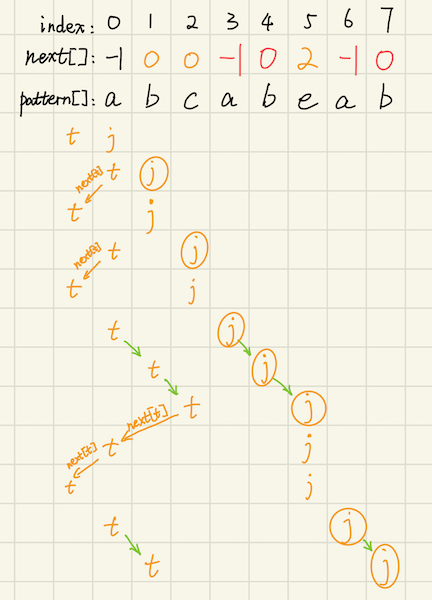 index: 0 1 2 3 4 5 6 7
next[]: -1 0 0 -1 0 2 -1 0
pattern[]: a b c a b e a b
t j
next[t] t j
t j
next[t] t j
t j
t j
t j
t j
next[t]
t j
next[t]
t j
t j
t j